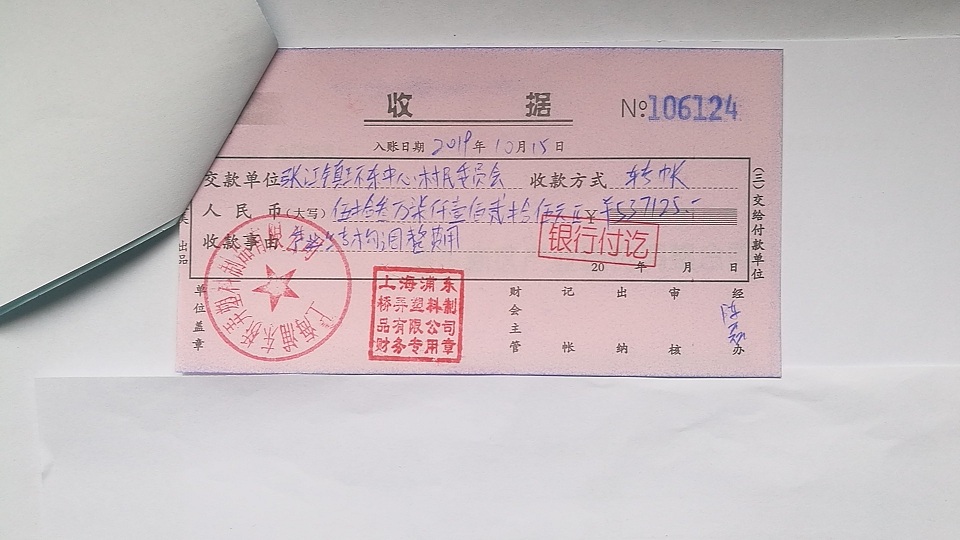 收据
№106124
入账日期 2019年10月15日
交款单位 张江镇环东中心村民委员会 收款方式 转帐
人民币(大写) 伍拾叁万柒仟壹佰贰拾伍元正 ¥537125.-
收款事由 结构调整费用
银行付讫
20 年 月 日
(三)交给付款单位
出品
单位盖章
上海浦东桥弄塑料制品有限公司
上海浦东
桥弄塑料制
品有限公司
财务专用章
财会主管
记帐
出纳
审核
经办